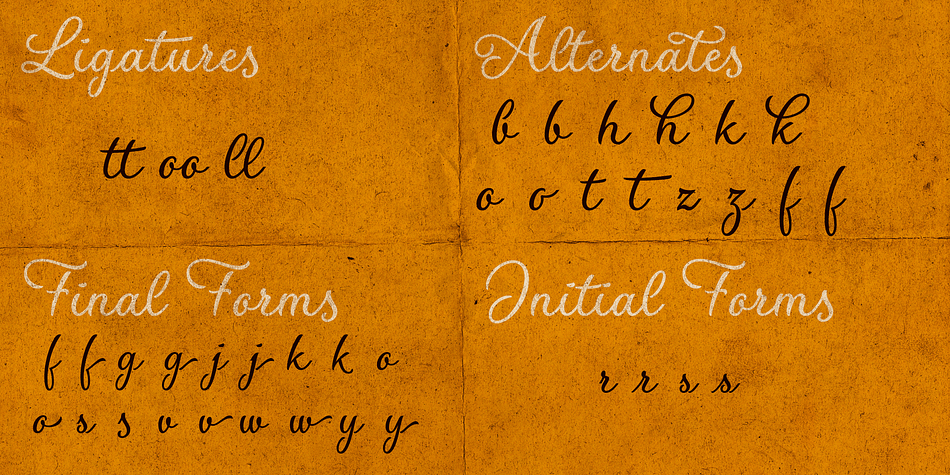 Ligatures
tt oo ll
Alternates
b b h h k k
o o t t z z f f
Final Forms
f f g g j j k k o
o s s v v w w y y
Initial Forms
r r s s